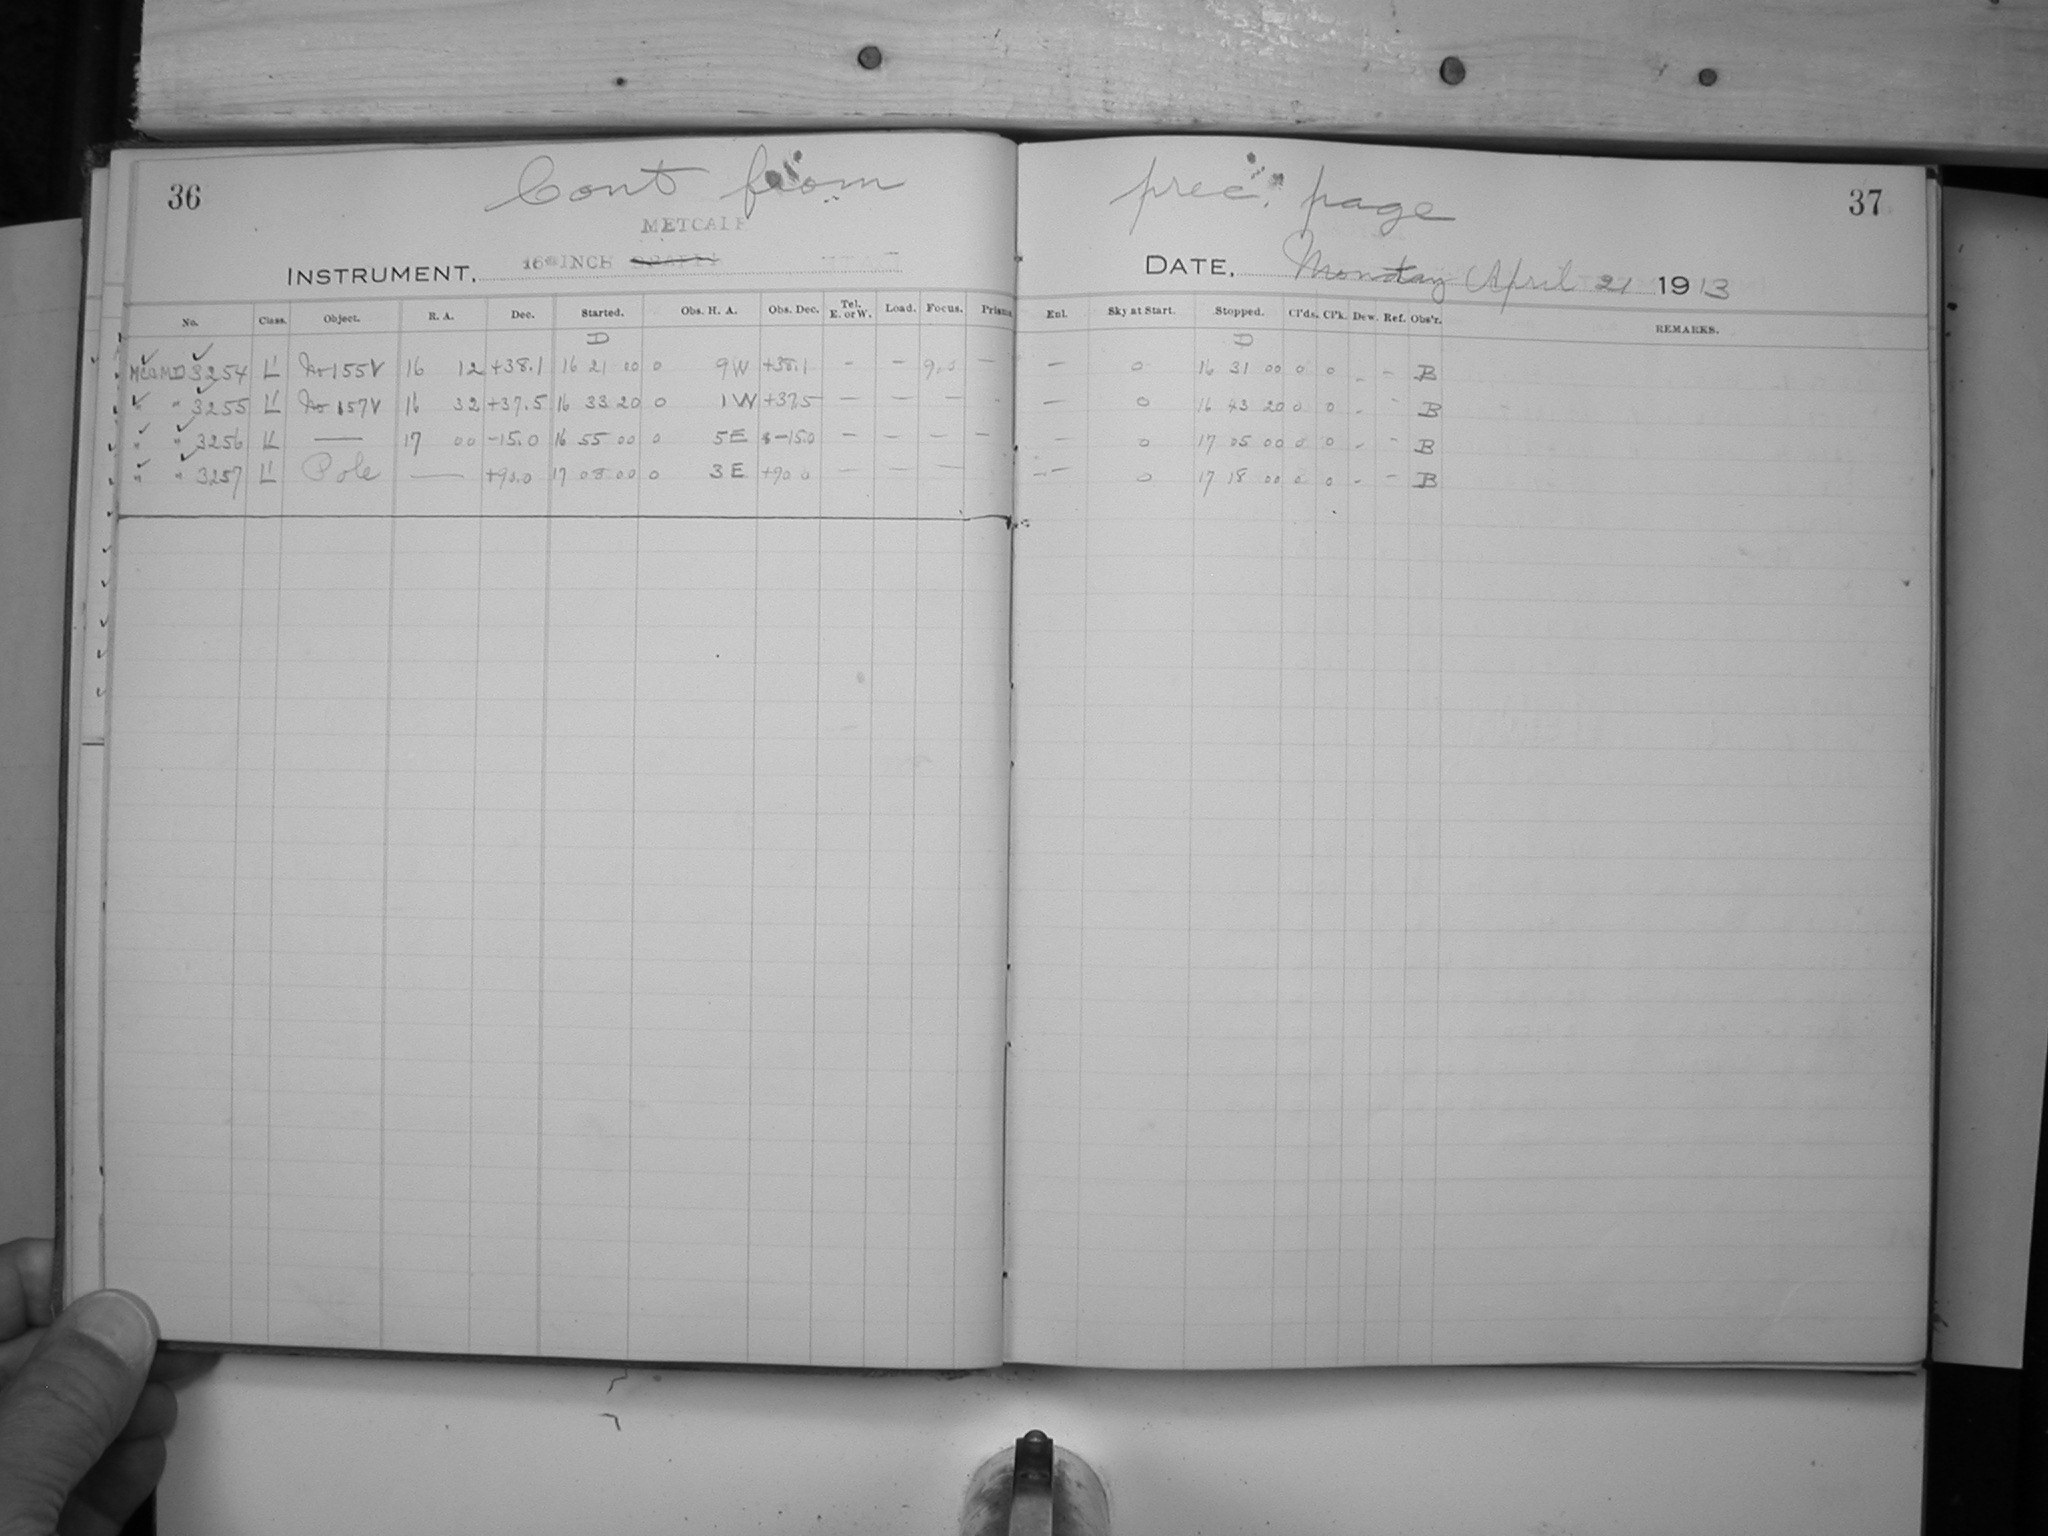 36
Cont from
METCALF
INSTRUMENT, 16 INCH
No. Class. Object. R. A. Dec. Started. Obs. H. A. Obs. Dec. Tel. E. or W. Load. Focus. Prism
D
3254 L No 155V 16 12 +38.1 16 21 00 0 9W +38.1 - - 9.0 —
" " 3255 L No 157V 16 32 +37.5 16 33 20 0 1W +37.5 — — — -
" " 3256 L — 17 00 -15.0 16 55 00 0 5E -15.0 — — — —
" " 3257 L Pole — +90.0 17 08 00 0 3E +90 0 — — —
prec. page
37
DATE, Monday April 21 1913
Enl. Sky at Start. Stopped. Cl'ds. Cl'k. Dew. Ref. Obs'r. REMARKS.
D
— 0 16 31 00 0 0 - - B
— 0 16 43 20 0 0 - - B
— 0 17 05 00 0 0 - - B
— 0 17 18 00 0 0 - - B